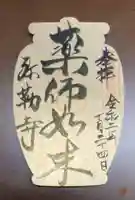 奉拝 令和二年
十一月二十四日
薬師如来
弥勒寺